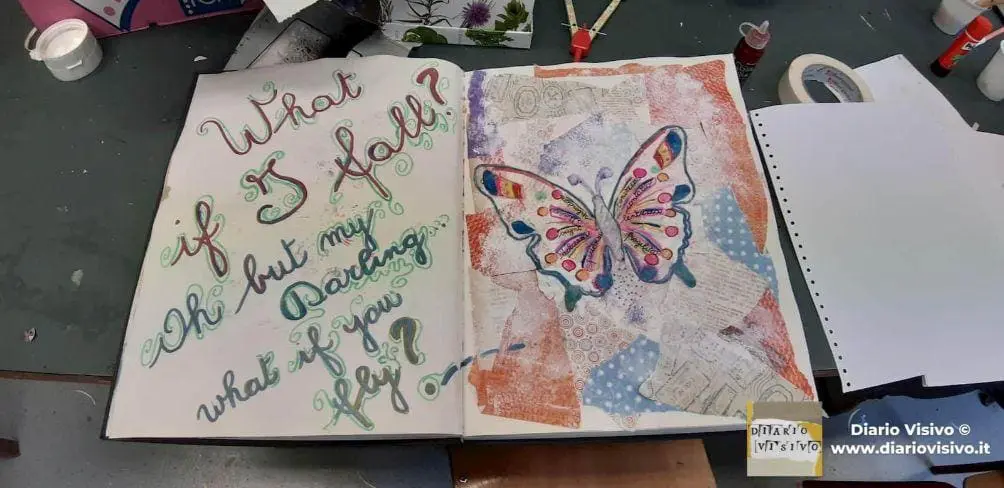 What
if I fall?
Oh but my
Darling...
what if you
fly?
DIARIO
VISIVO
Diario Visivo ©
www.diariovisivo.it